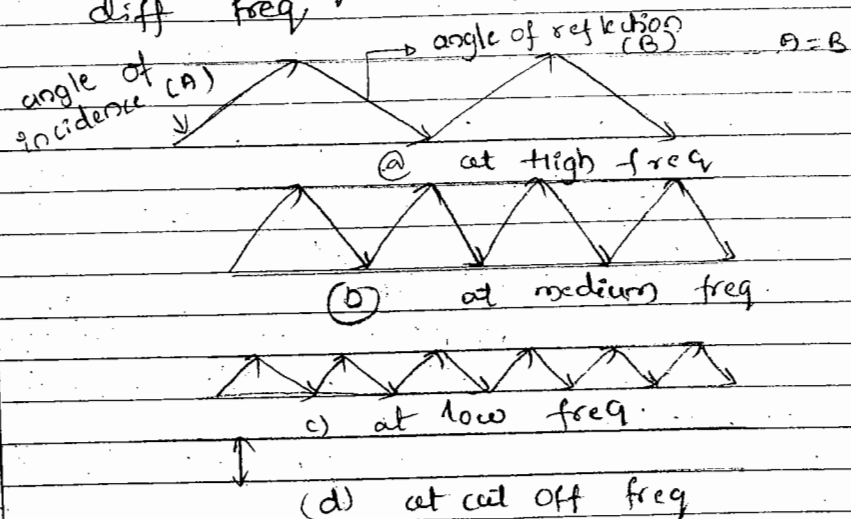 diff freq
angle of reflection
(B)
A = B
angle of
incidence (A)
(a) at High freq
(b) at medium freq.
c) at low freq.
(d) at cut off freq